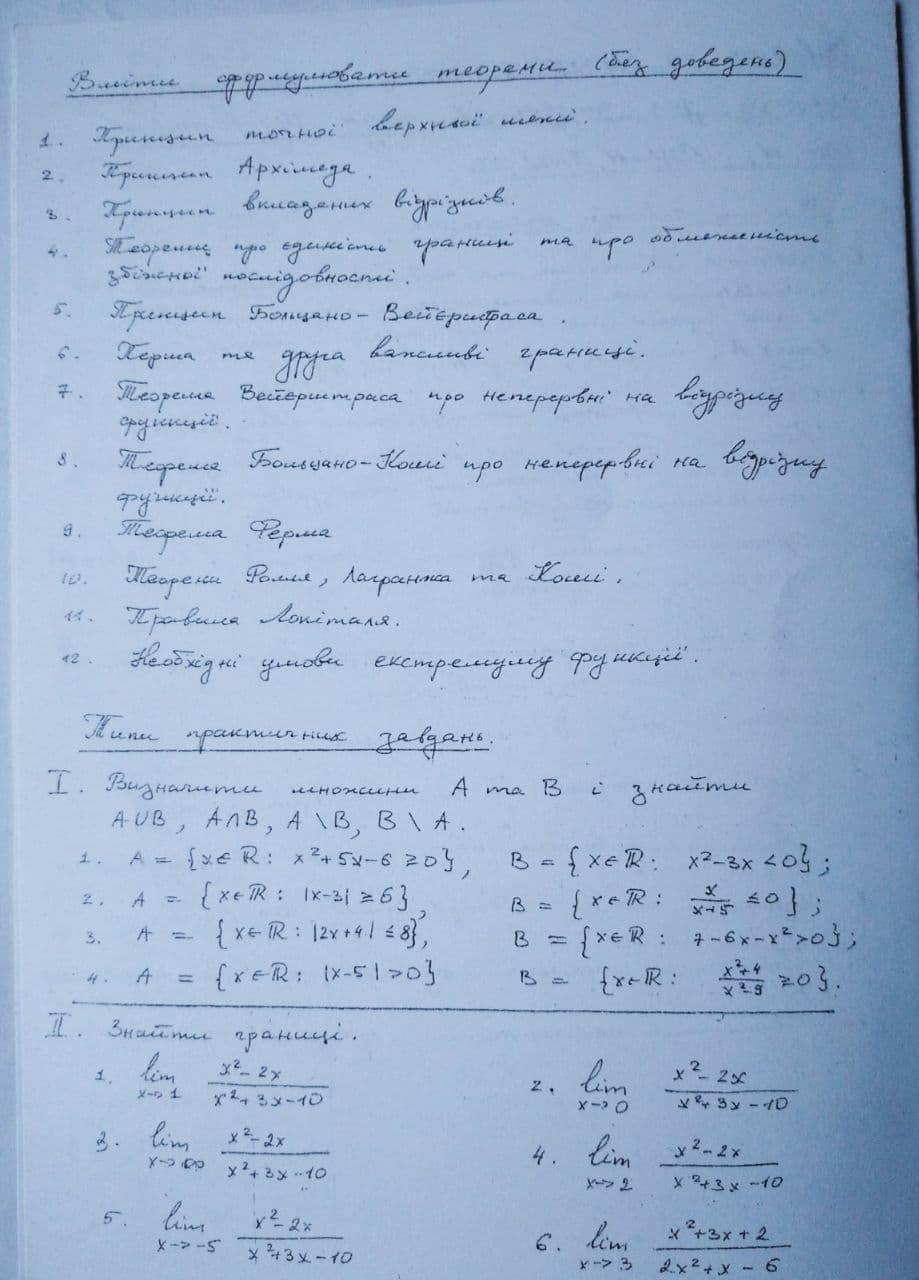 Вміти формулювати теореми (без доведень)
1. Принцип точної верхньої межі.
2. Принцип Архімеда.
3. Принцип вкладених відрізків.
4. Теореми про єдиність границі та про обмеженість
збіжної послідовності.
5. Принцип Больцано-Вейєрштраса.
6. Перша та друга важливі границі.
7. Теорема Вейєрштраса про неперервні на відрізку
функції.
8. Теорема Больцано-Коші про неперервні на відрізку
функції.
9. Теорема Ферма
10. Теореми Ролля, Лагранжа та Коші.
11. Правила Лопіталя.
12. Необхідні умови екстремуму функції.
Типи практичних завдань.
I. Визначити множини A та B і знайти
A∪B, A∩B, A\B, B\A.
1. A = {x∈ℝ: x²+5x-6 ≥0}, B = {x∈ℝ: x²-3x <0};
2. A = {x∈ℝ: |x-3| ≥6}, B = {x∈ℝ: x/(x+5) ≤0};
3. A = {x∈ℝ: |2x+4| ≤8}, B = {x∈ℝ: 7-6x-x²>0};
4. A = {x∈ℝ: |x-5|>0} B = {x∈ℝ: (x²+4)/(x²-9) ≥0}.
II. Знайти границі.
1. lim x→1 (x²-2x)/(x²+3x-10) 2. lim x→0 (x²-2x)/(x²+3x-10)
3. lim x→∞ (x²-2x)/(x²+3x-10) 4. lim x→2 (x²-2x)/(x²+3x-10)
5. lim x→-5 (x²-2x)/(x²+3x-10) 6. lim x→3 (x²+3x+2)/(2x²+x-6)